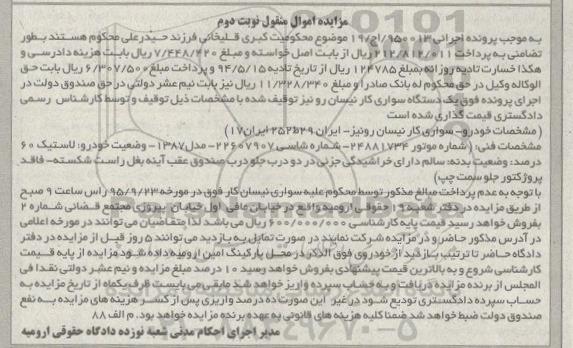 مزایده اموال منقول نوبت دوم
به موجب پرونده اجرائی ۹۵۰۰۱۳/اج/۱۹ موضوع محکومیت کبری قلیخانی فرزند حیدرعلی محکوم هستند بطور
تضامنی به پرداخت ۲۱۲/۸۱۲/۰۱۱ ریال از بابت اصل خواسته و مبلغ ۷/۴۴۸/۴۲۰ ریال بابت هزینه دادرسی و
هکذا خسارت تادیه روزانه بمبلغ ۱۲۴۷۸۵ ریال از تاریخ تادیه ۹۴/۵/۱۵ و پرداخت مبلغ ۶/۳۰۷/۵۰۰ ریال بابت حق
الوکاله وکیل در حق محکوم له بانک صادرا و مبلغ ۱۱/۳۲۸/۳۴۰ ریال نیز بابت نیم عشر دولتی در حق صندوق دولت در
اجرای پرونده فوق یک دستگاه سواری کار نیسان رو نیز توقیف شده با مشخصات ذیل توقیف و توسط کارشناس رسمی
دادگستری قیمت گذاری شده است
( مشخصات خودرو- سواری کار نیسان رونیز- ایران ۲۹ط۲۵۲ ایران۱۷)
مشخصات فنی: ( شماره موتور ۲۴۸۸۱۷۳۴- شماره شاسی ۲۲۶۰۷۹۰۷- مدل۱۳۸۷- وضعیت خودرو: لاستیک ۶۰
درصد: وضعیت بدنه: سالم دارای خراشیدگی جزئی در دو درب جلو درب صندوق عقب آینه بغل راست شکسته- فاقد
پروژکتور جلو سمت چپ)
با توجه به عدم پرداخت مبالغ مذکور توسط محکوم علیه سواری نیسان کار فوق در مورخه ۹۵/۹/۲۳ راس ساعت ۹ صبح
از طریق مزایده در دفتر شعبه ۱۹ حقوقی ارومیه واقع در خیابان عافی اول خیابان پیروزی مجتمع قضائی شماره ۲
بفروش خواهد رسید قیمت پایه کارشناسی ۶۰۰/۰۰۰/۰۰۰ ریال می باشد لذا متقاضیان می توانند در مورخه اعلامی
در آدرس مذکور حاضر و در مزایده شرکت نمایند در صورت تمایل به بازدید می توانند ۵ روز قبل از مزایده در دفتر
دادگاه حاضر تا ترتیب بازدید از خودروی فوق الذکر در محل پارکینگ امین ارومیه داده شود مزایده از پایه قیمت
کارشناسی شروع و به بالاترین قیمت پیشنهادی بفروش خواهد رسید ۱۰ درصد مبلغ مزایده و نیم عشر دولتی نقدا فی
المجلس از برنده مزایده دریافت و به حساب سپرده واریز خواهد شد مابقی می بایست ظرف یکماه از تاریخ مزایده به
حساب سپرده دادگستری تودیع شود در غیر این صورت ده درصد واریزی پس از کسر هزینه های مزایده به نفع
صندوق دولت ضبط خواهد شد ضمنا کلیه هزینه های قانونی به عهده برنده مزایده خواهد بود. م الف ۸۸
مدیر اجرای احکام مدنی شعبه نوزده دادگاه حقوقی ارومیه